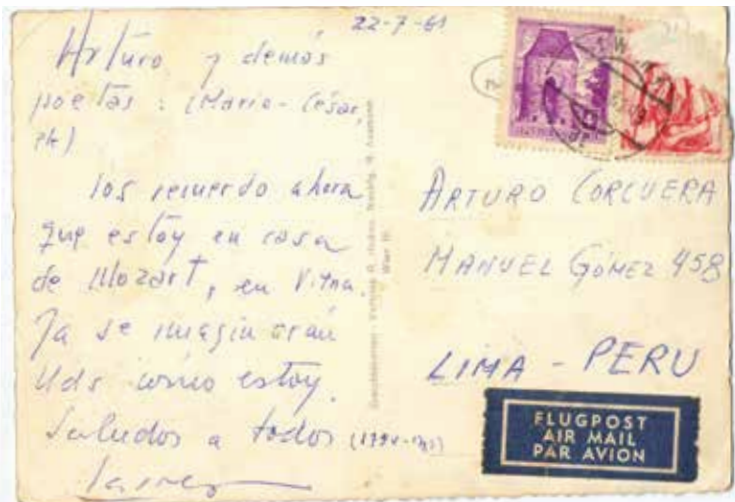 22-7-61
Arturo y demás
poetas: (Mario-César,
etc)
los recuerdo ahora
que estoy en casa
de Mozart, en Viena.
Ya se imaginarán
Uds cómo estoy.
Saludos a todos
ARTURO CORCUERA
MANUEL GÓMEZ 458
LIMA - PERU
FLUGPOST
AIR MAIL
PAR AVION